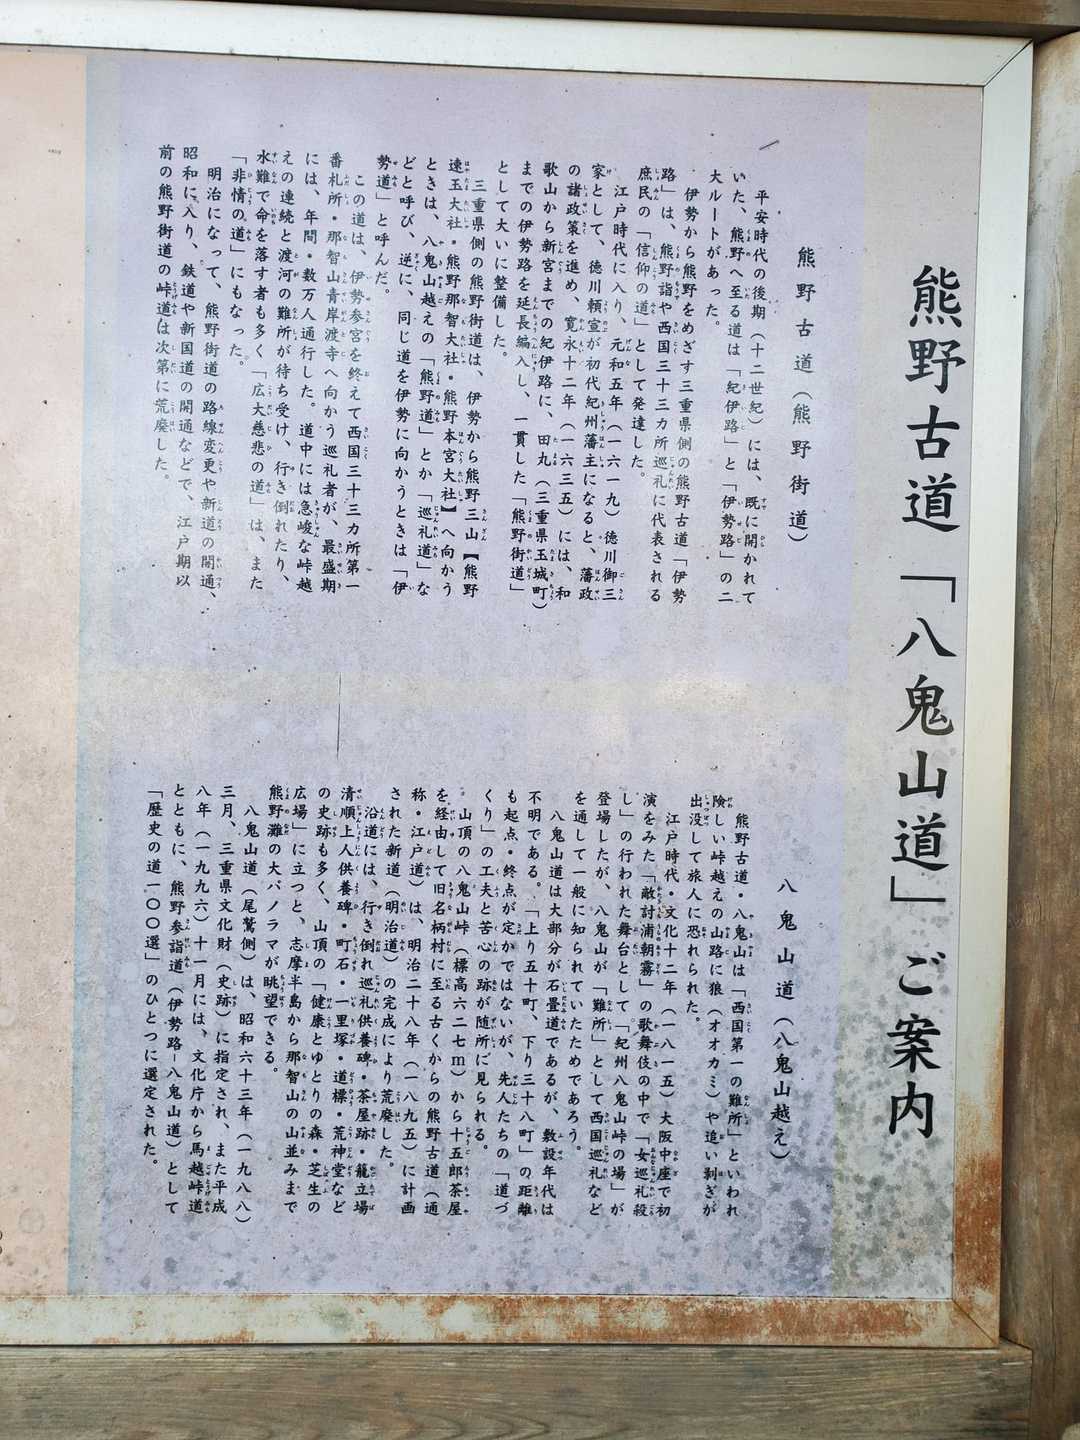 熊野古道「八鬼山道」ご案内
熊野古道（熊野街道）
平安時代の後期（十二世紀）には、既に開かれて
いた、熊野へ至る道は「紀伊路」と「伊勢路」の二
大ルートがあった。
伊勢から熊野をめざす三重県側の熊野古道「伊勢
路」は、熊野詣や西国三十三カ所巡礼に代表される
庶民の「信仰の道」として発達した。
江戸時代に入り、元和五年（一六一九）徳川御三
家として、徳川頼宣が初代紀州藩主になると、藩政
の諸政策を進め、寛永十二年（一六三五）には、和
歌山から新宮までの紀伊路に、田丸（三重県玉城町）
までの伊勢路を延長編入し、一貫した「熊野街道」
として大いに整備した。
三重県側の熊野街道は、伊勢から熊野三山【熊野
速玉大社・熊野那智大社・熊野本宮大社】へ向かう
ときは、八鬼山越えの「熊野道」とか「巡礼道」な
どと呼び、逆に、同じ道を伊勢に向かうときは「伊
勢道」と呼んだ。
この道は、伊勢参宮を終えて西国三十三カ所第一
番札所・那智山青岸渡寺へ向かう巡礼者が、最盛期
には、年間・数万人通行した。道中には急峻な峠越
えの連続と渡河の難所が待ち受け、行き倒れたり、
水難で命を落す者も多く「広大慈悲の道」は、また
「非情の道」にもなった。
明治になって、熊野街道の路線変更や新道の開通、
昭和に入り、鉄道や新国道の開通などで、江戸期以
前の熊野街道の峠道は次第に荒廃した。
八鬼山道（八鬼山越え）
熊野古道・八鬼山は「西国第一の難所」といわれ
険しい峠越えの山路に狼（オオカミ）や追い剥ぎが
出没して旅人に恐れられた。
江戸時代・文化十二年（一八一五）大阪中座で初
演をみた「敵討浦朝霧」の歌舞伎の中で「女巡礼殺
し」の行われた舞台として「紀州八鬼山峠の場」が
登場したが、八鬼山が「難所」として西国巡礼など
を通して一般に知られていたためであろう。
八鬼山道は大部分が石畳道であるが、敷設年代は
不明である。「上り五十町、下り三十八町」の距離
も起点・終点が定かではないが、先人たちの「道づ
くり」の工夫と苦心の跡が随所に見られる。
山頂の八鬼山峠（標高六二七ｍ）から十五郎茶屋
を経由して旧名柄村に至る古くからの熊野古道（通
称・江戸道）は、明治二十八年（一八九五）に計画
された新道（明治道）の完成により荒廃した。
沿道には、行き倒れ巡礼供養碑・茶屋跡・籠立場
清順上人供養碑・町石・一里塚・道標・荒神堂など
の史跡も多く、山頂の「健康とゆとりの森・芝生の
広場」に立つと、志摩半島から那智山の山並みまで
熊野灘の大パノラマが眺望できる。
八鬼山道（尾鷲側）は、昭和六十三年（一九八八）
三月、三重県文化財（史跡）に指定され、また平成
八年（一九九六）十一月には、文化庁から馬越峠道
とともに、熊野参詣道（伊勢路－八鬼山道）として
「歴史の道一〇〇選」のひとつに選定された。